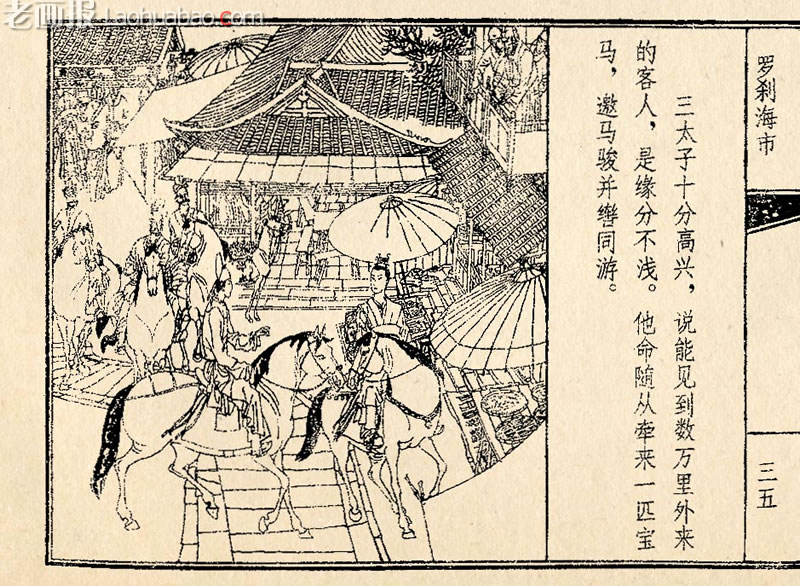 老画报
www.Laohuabao.com
罗刹海市
三太子十分高兴，说能见到数万里外来
的客人，是缘分不浅。他命随从牵来一匹宝
马，邀马骏并辔同游。
三五